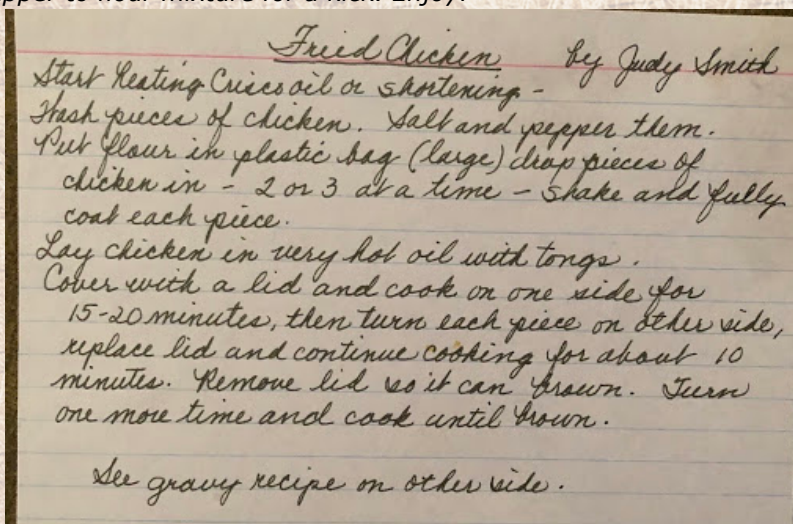 pper to flour mixture for a kick. Enjoy!
Fried Chicken by Judy Smith
Start heating Crisco oil or shortening -
Wash pieces of chicken. Salt and pepper them.
Put flour in plastic bag (large) drop pieces of
chicken in - 2 or 3 at a time - shake and fully
coat each piece.
Lay chicken in very hot oil with tongs.
Cover with a lid and cook on one side for
15-20 minutes, then turn each piece on other side,
replace lid and continue cooking for about 10
minutes. Remove lid so it can brown. Turn
one more time and cook until brown.
See gravy recipe on other side.